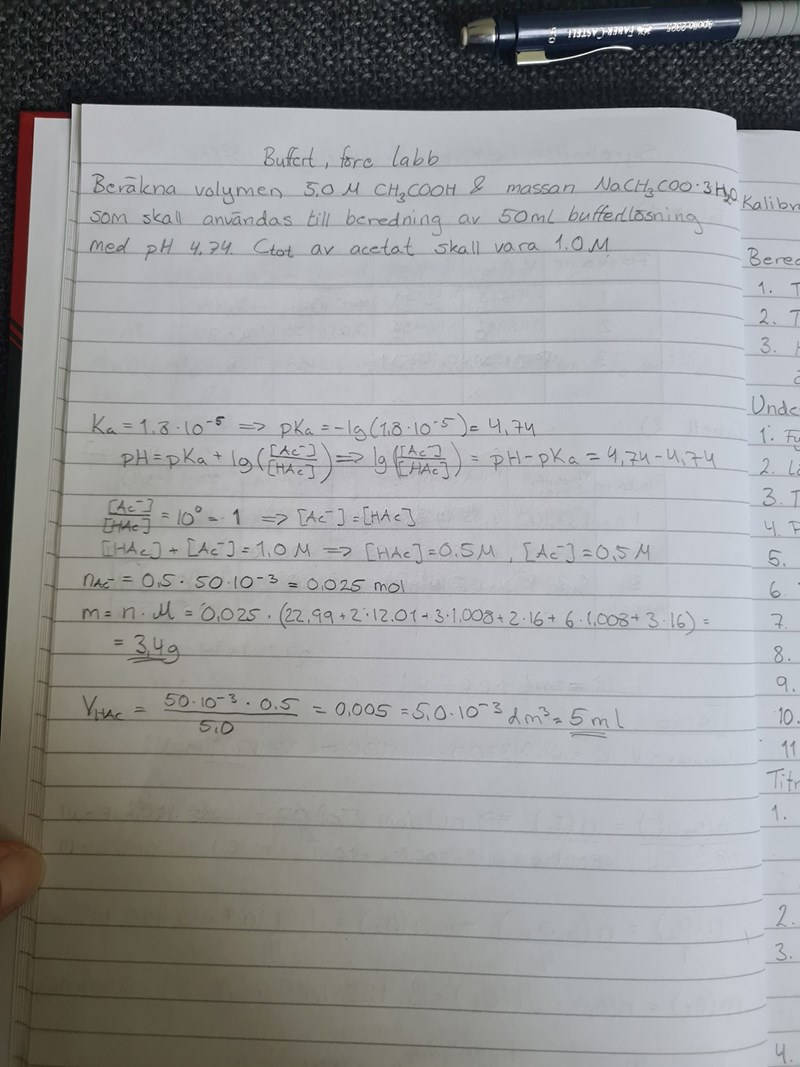 Buffert, före labb
Beräkna volymen 5.0 M CH₃COOH & massan NaCH₃COO·3H₂O
som skall användas till beredning av 50ml buffertlösning
med pH 4,74. Ctot av acetat skall vara 1.0 M
Ka = 1.8·10⁻⁵ => pKa = -lg(1,8·10⁻⁵) = 4,74
pH = pKa + lg([Ac⁻]/[HAc]) => lg([Ac⁻]/[HAc]) = pH - pKa = 4,74 - 4,74
[Ac⁻]/[HAc] = 10⁰ = 1 => [Ac⁻] = [HAc]
[HAc] + [Ac⁻] = 1,0 M => [HAc] = 0.5 M, [Ac⁻] = 0,5 M
nAc⁻ = 0,5 · 50·10⁻³ = 0,025 mol
m = n · M = 0,025 · (22,99 + 2·12.01 + 3·1,008 + 2·16 + 6·1,008 + 3·16) =
= 3,4g
VHAc = 50·10⁻³ · 0,5 / 5,0 = 0,005 = 5,0·10⁻³ dm³ = 5 ml
Kalibr
Bered
1. T
2. T
3.
Unde
1.
2.
3. T
4. F
5.
6.
7.
8.
9.
10.
11
Titr
1.
2.
3.
4.
FABER-CASTELL